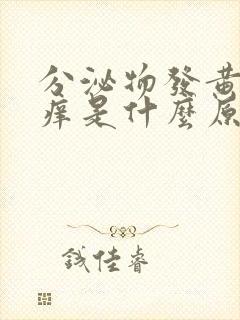 分泌物發黃
痒是什麼原
钱佳睿